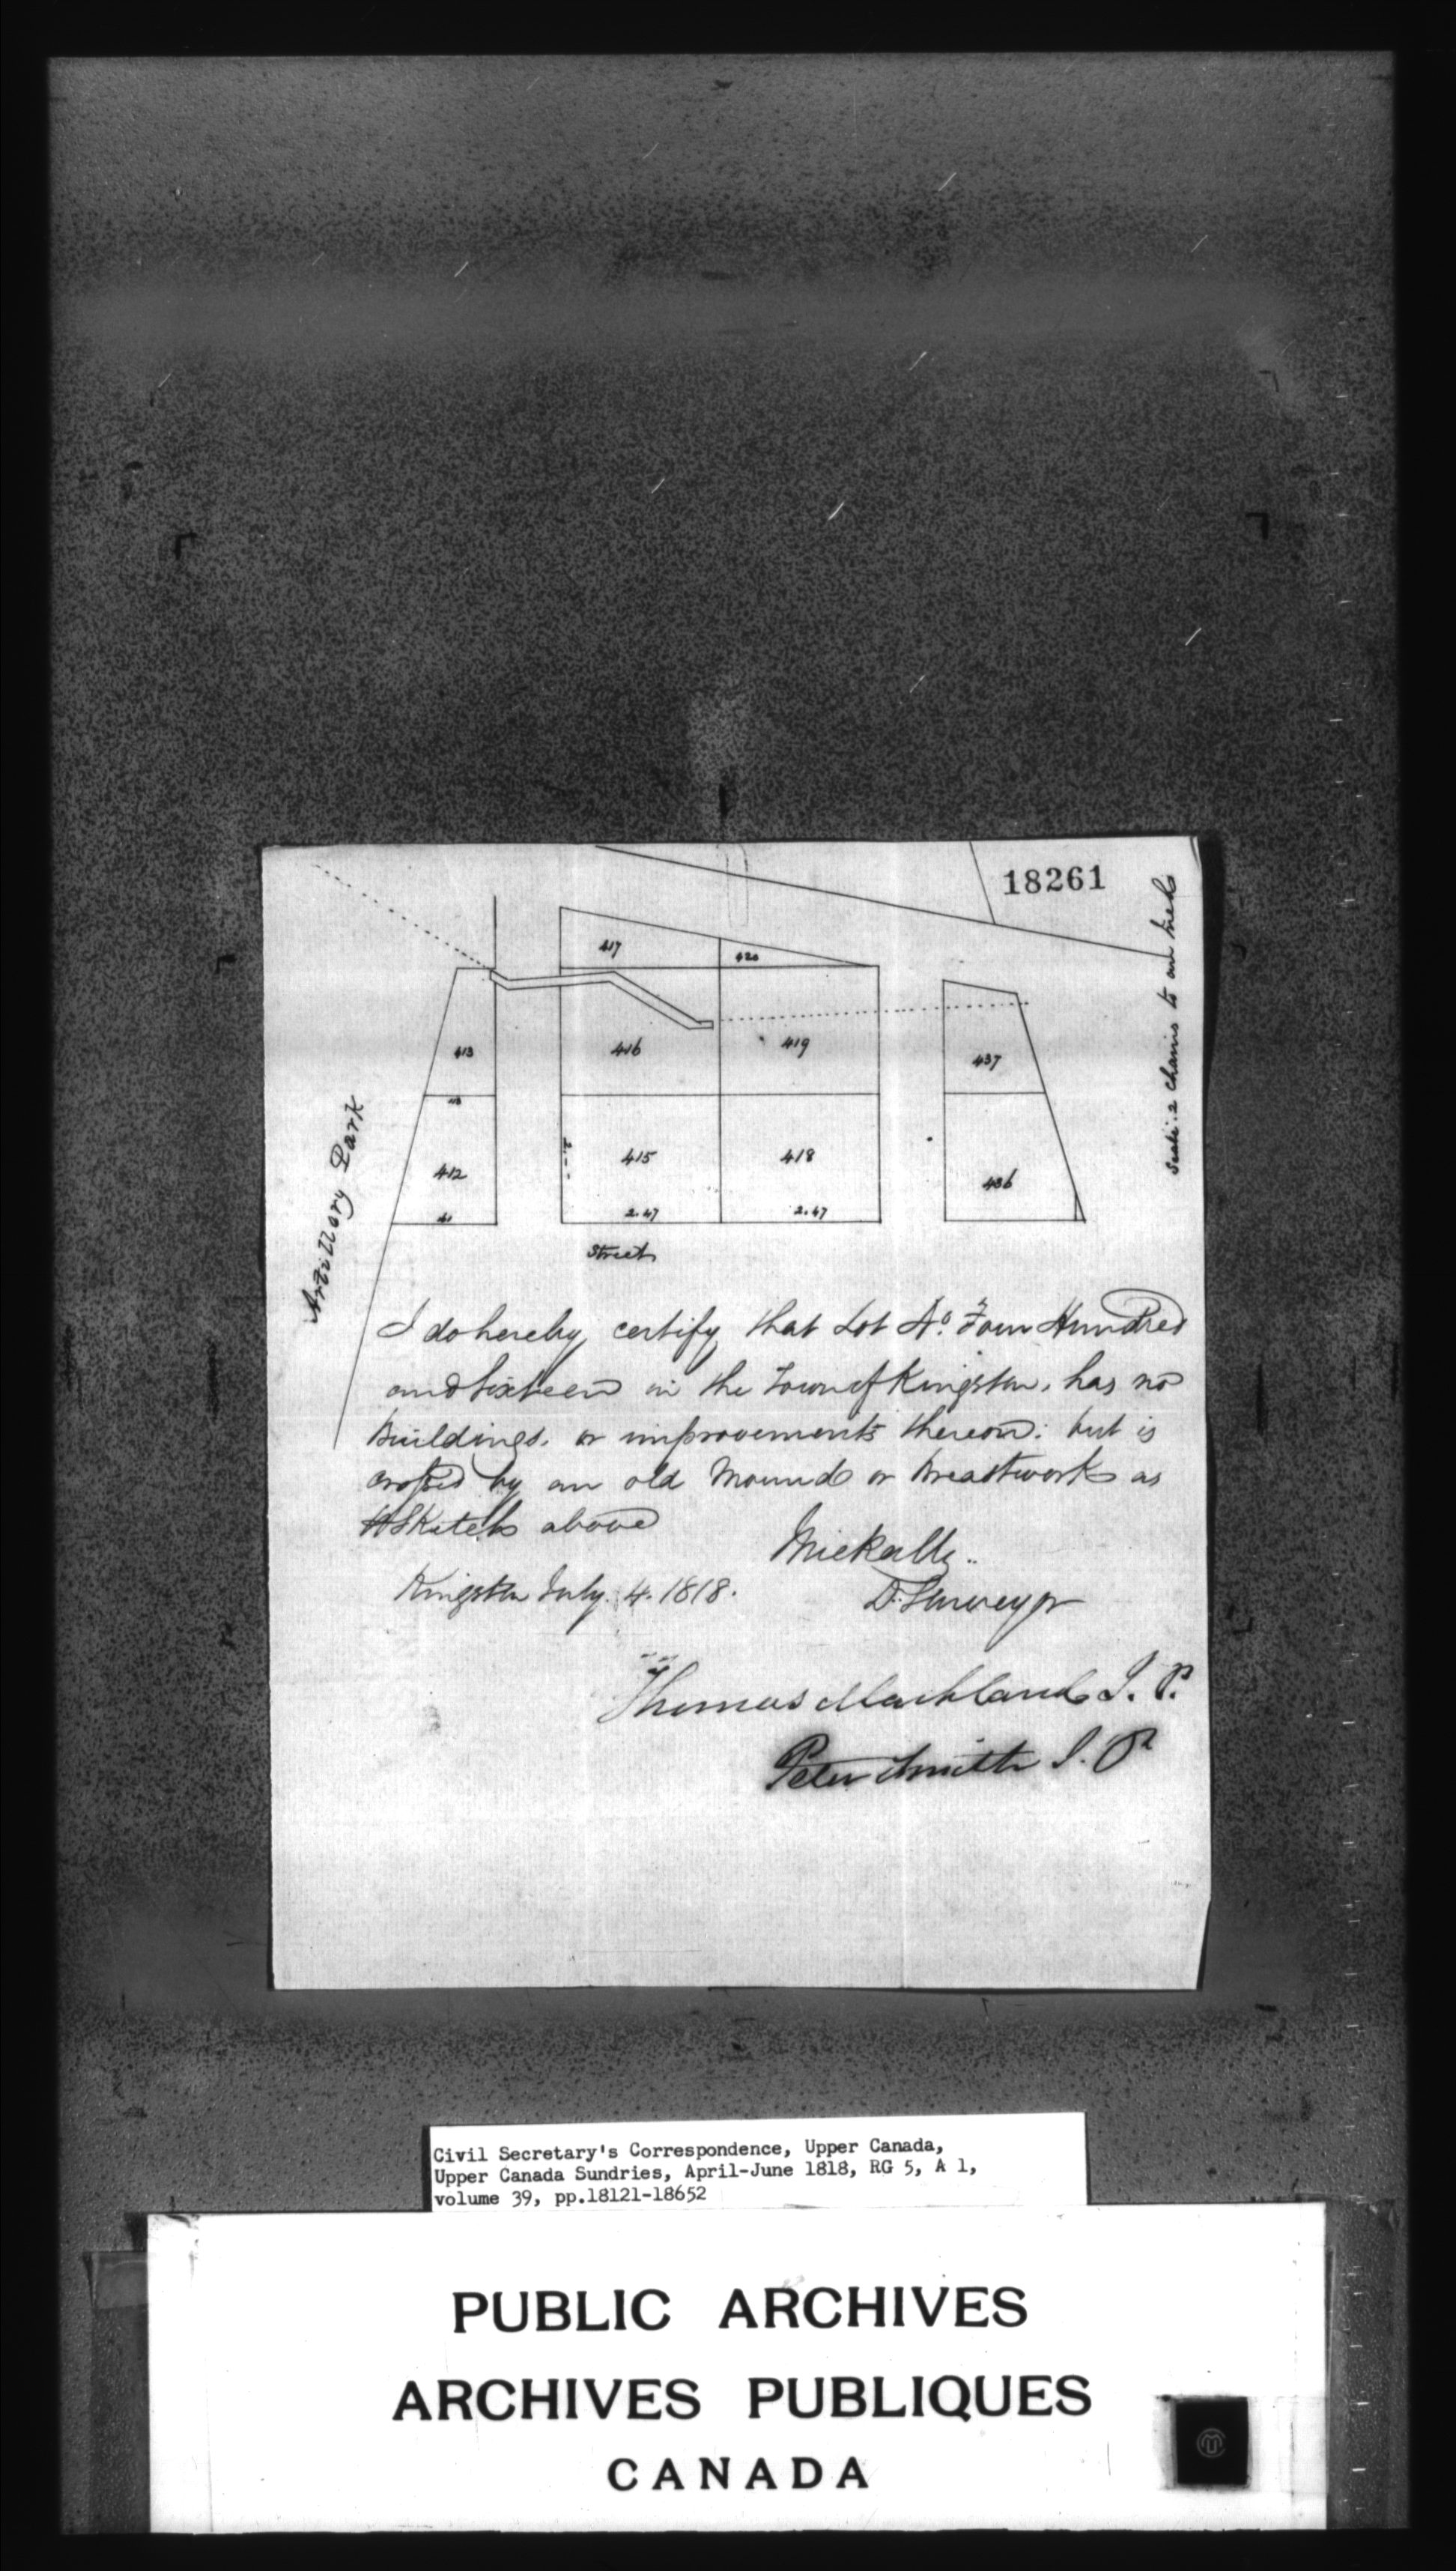 18261
Scale: 2 chains to an Inch
417
420
413
416
419
437
412
415
418
436
2.47
2.47
Artillery Park
Street
I do hereby certify that Lot No. Four Hundred
and Sixteen in the Town of Kingston, has no
Buildings, or improvements thereon: but is
crossed by an old Mound or Breastwork as
Sketch above
Kingston July. 4. 1818.
D. Surveyor
Thomas Markland J. P.
Peter Smith J. P
Civil Secretary's Correspondence, Upper Canada,
Upper Canada Sundries, April-June 1818, RG 5, A 1,
volume 39, pp.18121-18652
PUBLIC ARCHIVES
ARCHIVES PUBLIQUES
CANADA